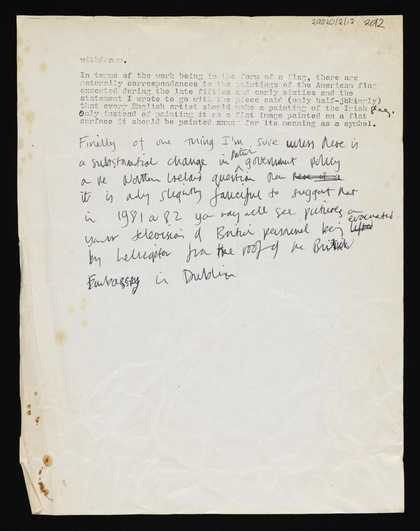 200210/2/12 202
withdrawn.
In terms of the work being in the form of a flag, there are
naturally correspondences to the paintings of the American flag
executed during the late fifties and early sixties and the
statement I wrote to go with the piece said (only half-jokingly)
that every English artist should make a painting of the Irish flag.
Only instead of painting it as a flat image painted on a flat
surface it should be painted for its meaning as a symbol.
Finally of one thing I'm sure unless there is
a substantial change in British government policy
on the Northern Ireland question then
it is only slightly fanciful to suggest that
in 1981 or 82 you may well see pictures on
your television of British personnel being evacuated
by helicopter from the roof of the British
Embassy in Dublin